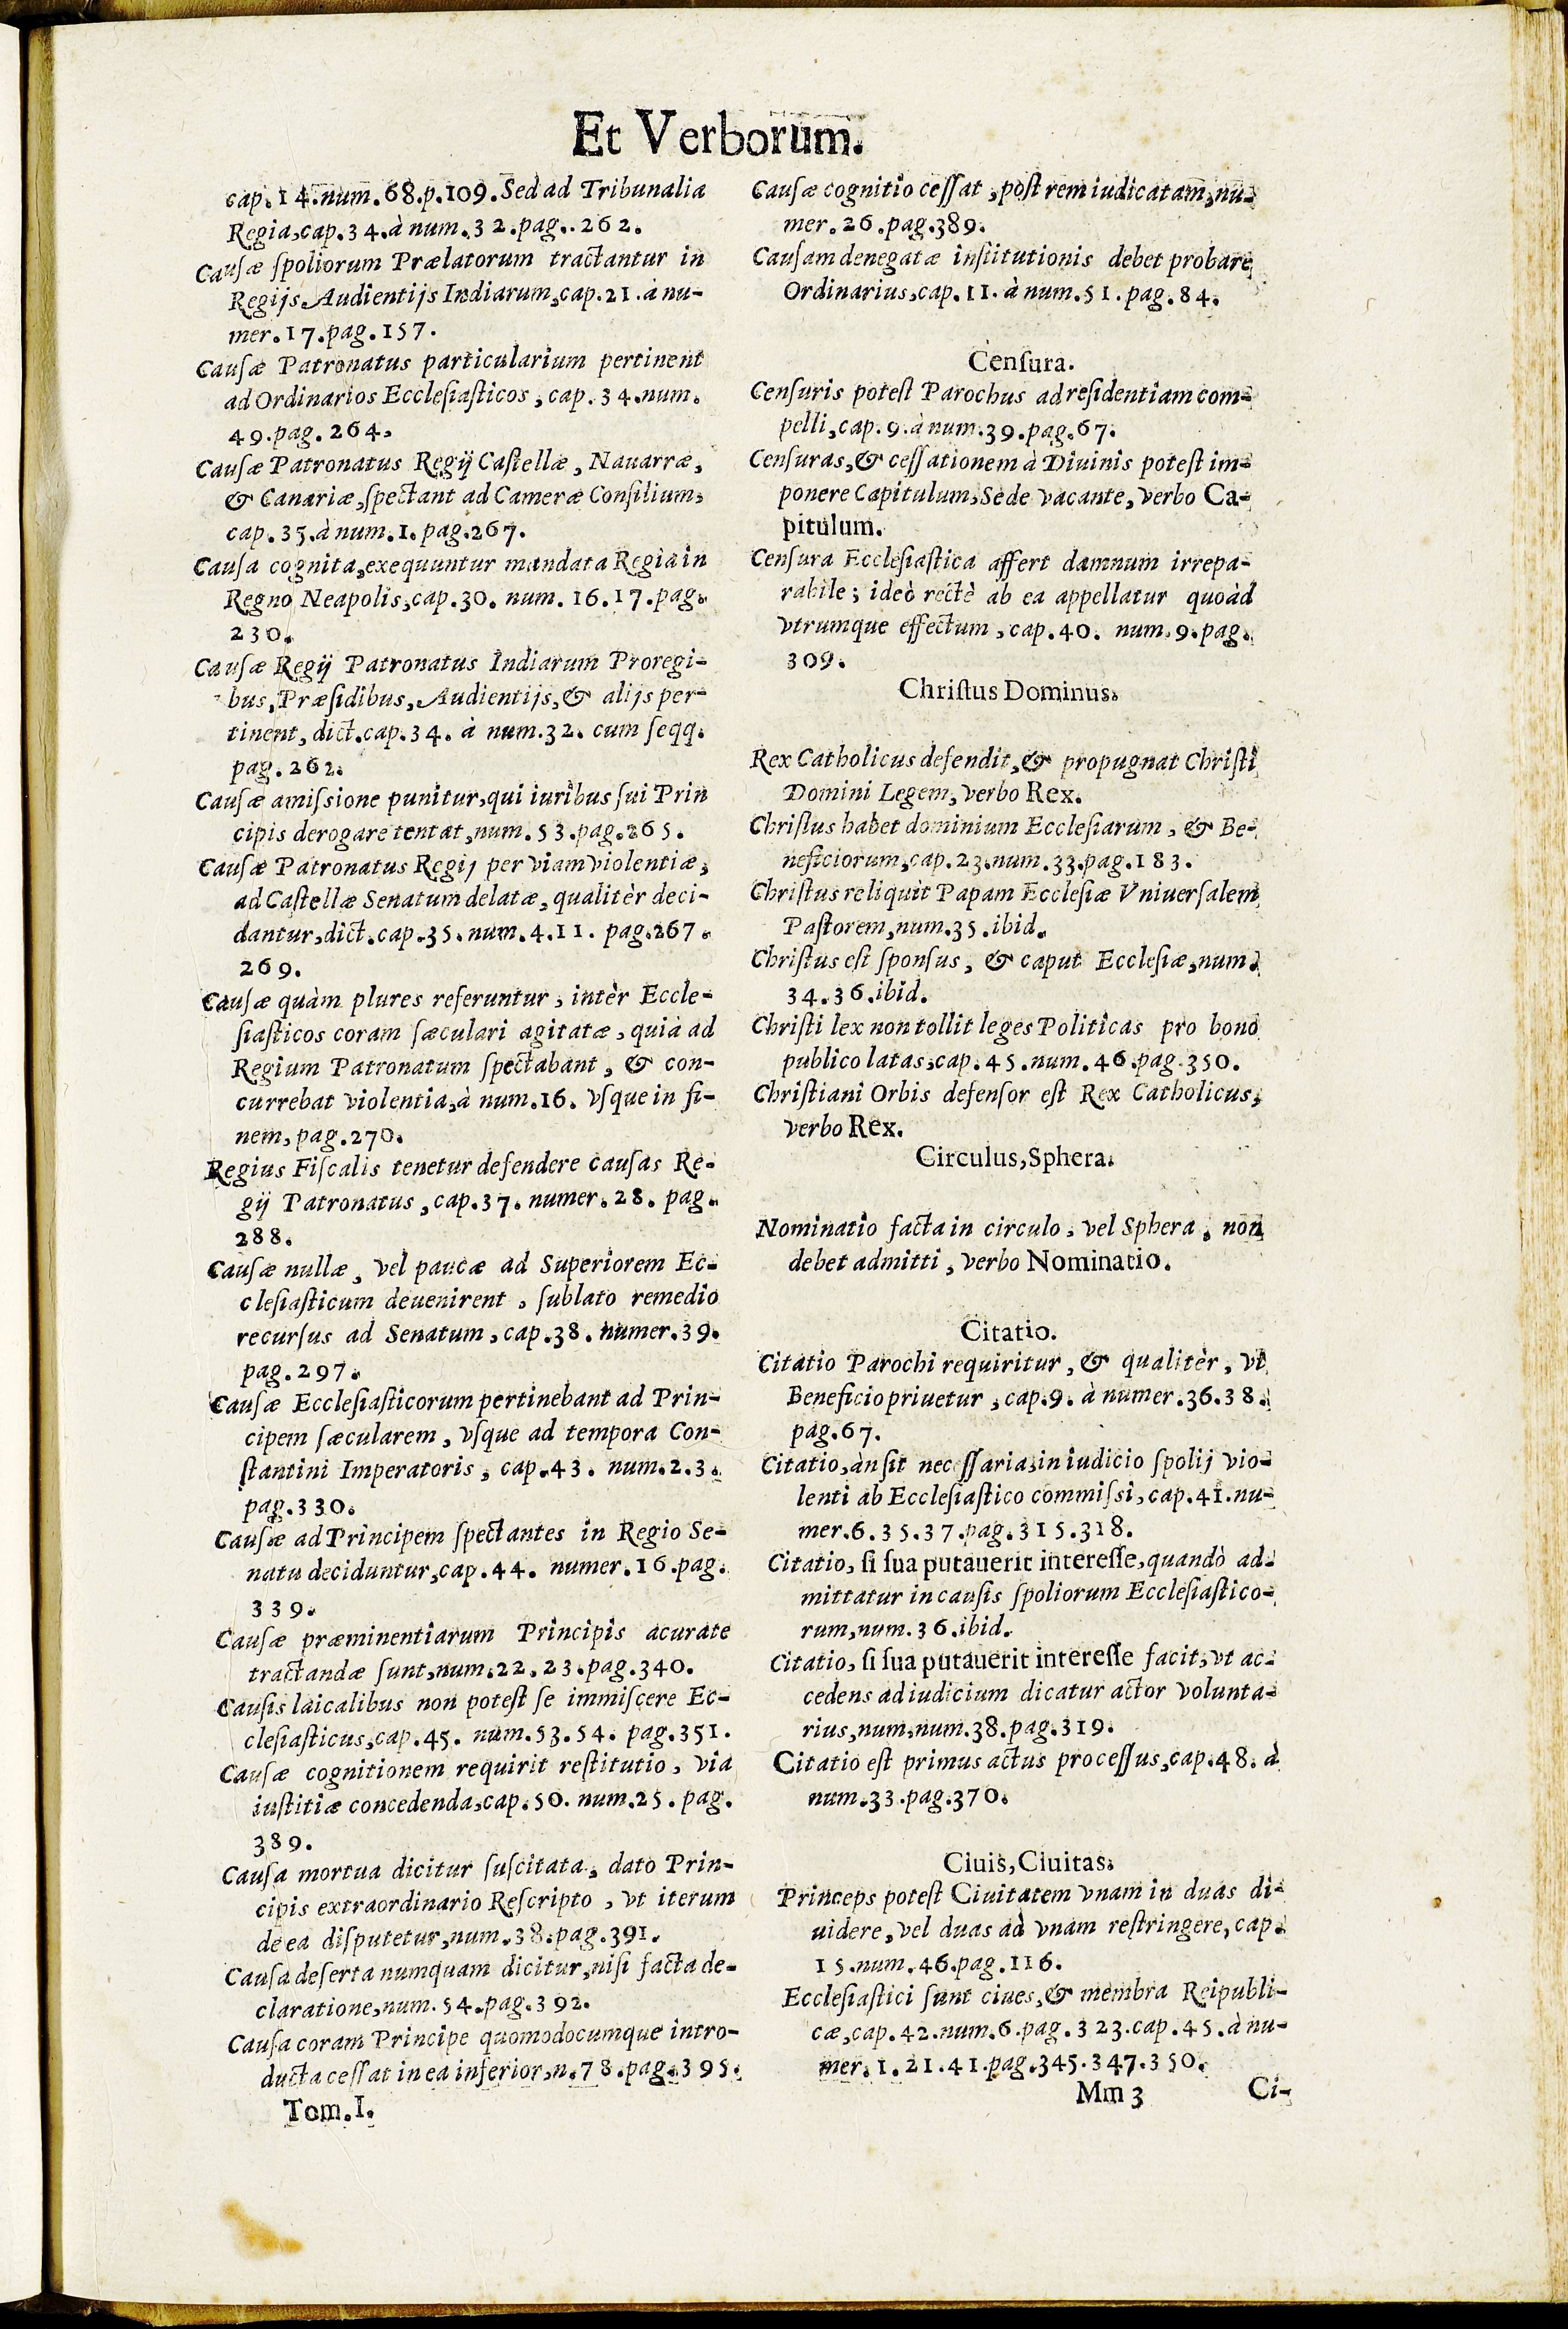 Et Verborum.
cap.14.num.68.p.109.Sed ad Tribunalia
Regia,cap.34.à num.32.pag..262.
Causæ ſpoliorum Prælatorum tractantur in
Regijs Audientijs Indiarum,cap.21.à nu-
mer.17.pag.157.
Causæ Patronatus particularium pertinent
ad Ordinarios Eccleſiaſticos, cap.34.num.
49.pag.264.
Cauſæ Patronatus Regij Caſtellæ, Nauarræ,
& Canariæ,ſpectant ad Cameræ Conſilium,
cap.35.à num.1.pag.267.
Cauſa cognita,exequuntur mandata Regia in
Regno Neapolis,cap.30. num. 16.17.pag.
230.
Cauſæ Regij Patronatus Indiarum Proregi-
bus,Præſidibus,Audientijs,& alijs per-
tinent, dict.cap.34. à num.32. cum ſeqq.
pag.262.
Cauſæ amiſsione punitur,qui iuribus ſui Prin
cipis derogare tentat,num.53.pag.265.
Cauſæ Patronatus Regij per viam violentiæ,
ad Caſtellæ Senatum delatæ,qualitèr deci-
dantur,dict.cap.35.num.4.11. pag.267.
269.
Cauſæ quàm plures referuntur, intèr Eccle-
ſiaſticos coram ſæculari agitatæ, quia ad
Regium Patronatum ſpectabant, & con-
currebat violentia,à num.16. vſque in fi-
nem, pag.270.
Regius Fiſcalis tenetur defendere cauſas Re-
gij Patronatus, cap.37. numer.28. pag.
288.
Cauſæ nullæ, vel paucæ ad Superiorem Ec-
cleſiaſticum deuenirent, ſublato remedio
recurſus ad Senatum, cap.38. numer.39.
pag.297.
Cauſæ Eccleſiaſticorum pertinebant ad Prin-
cipem ſæcularem, vſque ad tempora Con-
ſtantini Imperatoris, cap.43. num.2.3.
pag.330.
Cauſæ ad Principem ſpectantes in Regio Se-
natu deciduntur,cap.44. numer.16.pag.
339.
Cauſæ præminentiarum Principis acurate
tractandæ ſunt,num.22.23.pag.340.
Cauſis laicalibus non poteſt ſe immiſcere Ec-
cleſiaſticus,cap.45. num.53.54. pag.351.
Cauſæ cognitionem requirit reſtitutio, via
iuſtitiæ concedenda,cap.50. num.25. pag.
389.
Cauſa mortua dicitur ſuſcitata, dato Prin-
cipis extraordinario Reſcripto, vt iterum
de ea diſputetur,num.38.pag.391.
Cauſa deſerta numquam dicitur,niſi facta de-
claratione,num.54.pag.392.
Cauſa coram Principe quomodocumque intro-
ducta ceſſat in ea inferior,n.78.pag.395.
Tom.I.
Cauſæ cognitio ceſſat, poſt rem iudicatam,nu-
mer.26.pag.389.
Cauſam denegatæ inſtitutionis debet probare
Ordinarius,cap.11. à num.51.pag.84.
Cenſura.
Cenſuris poteſt Parochus ad reſidentiam com-
pelli,cap.9.à num.39.pag.67.
Cenſuras,& ceſſationem à Diuinis poteſt im-
ponere Capitulum,Sede vacante, verbo Ca-
pitulum.
Cenſura Eccleſiaſtica affert damnum irrepa-
rabile; ideò rectè ab ea appellatur quoàd
vtrumque effectum, cap.40. num.9.pag.
309.
Chriſtus Dominus.
Rex Catholicus defendit,& propugnat Chriſti
Domini Legem, verbo Rex.
Chriſtus habet dominium Eccleſiarum, & Be-
neficiorum,cap.23.num.33.pag.183.
Chriſtus reliquit Papam Eccleſiæ Vniuerſalem
Paſtorem,num.35.ibid.
Chriſtus eſt ſponſus, & caput Eccleſiæ,num.
34.36.ibid.
Chriſti lex non tollit leges Politicas pro bono
publico latas,cap.45.num.46.pag.350.
Chriſtiani Orbis defenſor eſt Rex Catholicus,
verbo Rex.
Circulus,Sphera.
Nominatio facta in circulo, vel Sphera, non
debet admitti, verbo Nominatio.
Citatio.
Citatio Parochi requiritur, & qualitèr, vt
Beneficio priuetur, cap.9. à numer.36.38.
pag.67.
Citatio,àn ſit neceſſaria,in iudicio ſpolij vio-
lenti ab Eccleſiaſtico commiſsi,cap.41.nu-
mer.6.35.37.pag.315.318.
Citatio, ſi ſua putauerit intereſſe,quandò ad-
mittatur in cauſis ſpoliorum Eccleſiaſtico-
rum,num.36.ibid.
Citatio, ſi ſua putauerit intereſſe facit,vt ac-
cedens ad iudicium dicatur actor volunta-
rius,num,num.38.pag.319.
Citatio eſt primus actus proceſſus,cap.48. à
num.33.pag.370.
Ciuis,Ciuitas.
Princeps poteſt Ciuitatem vnam in duas di-
uidere, vel duas ad vnam reſtringere, cap.
15.num.46.pag.116.
Eccleſiaſtici ſunt ciues,& membra Reipubli-
cæ,cap.42.num.6.pag.323.cap.45.à nu-
mer.1.21.41.pag.345.347.350.
Mm 3 Ci-